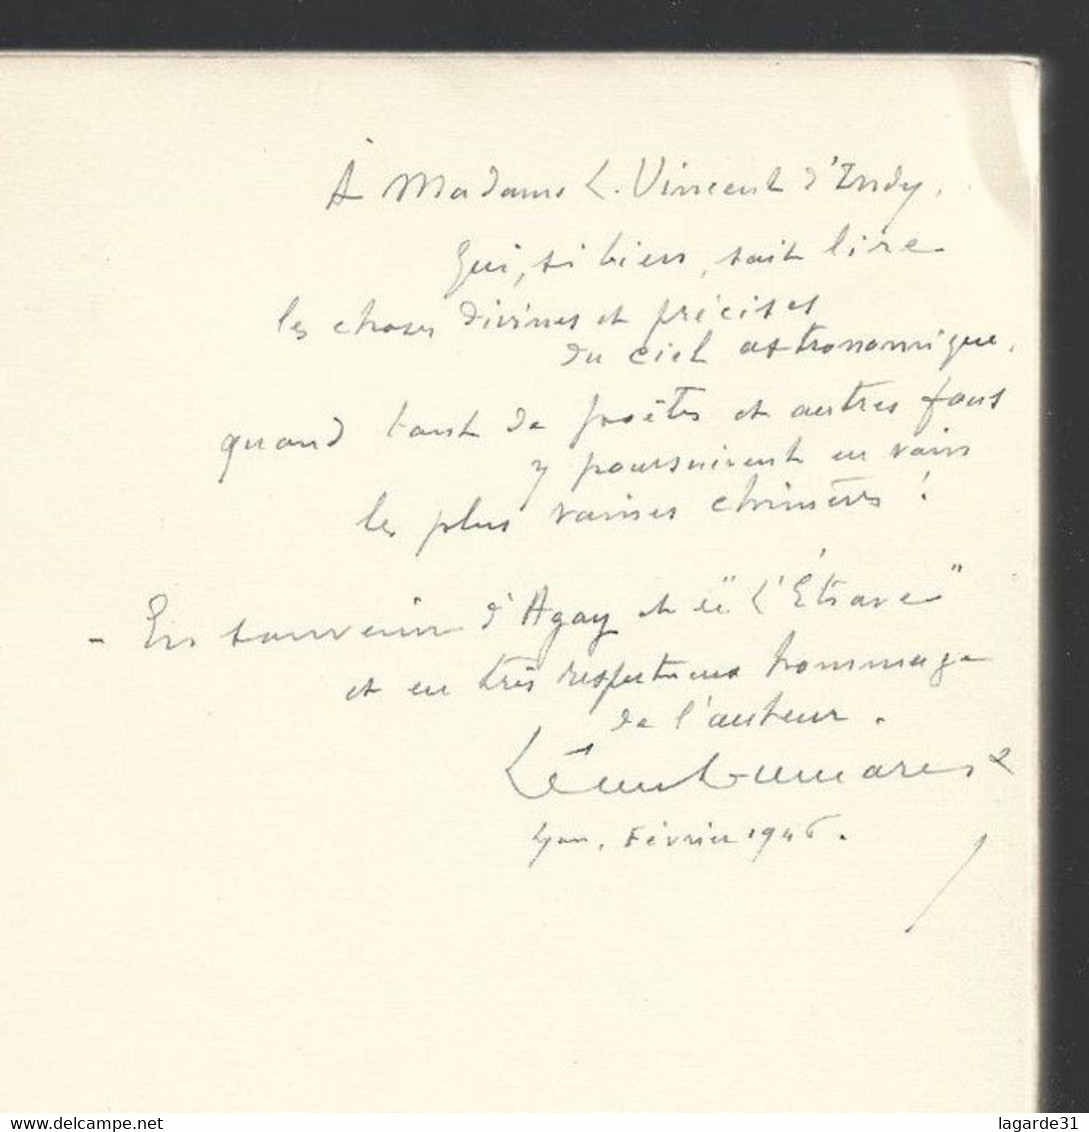 À Madame L. Vincent d'Indy.
Qui, si bien, sait lire
les choses divines et précises
du ciel astronomique,
quand tant de poètes et autres fous
y poursuivent en vain
les plus vaines chimères !
- En souvenir d'Agay et de "L'Étrave"
et en très respectueux hommage
de l'auteur.
Lyon, Février 1946.
delcampe.net
lagarde31